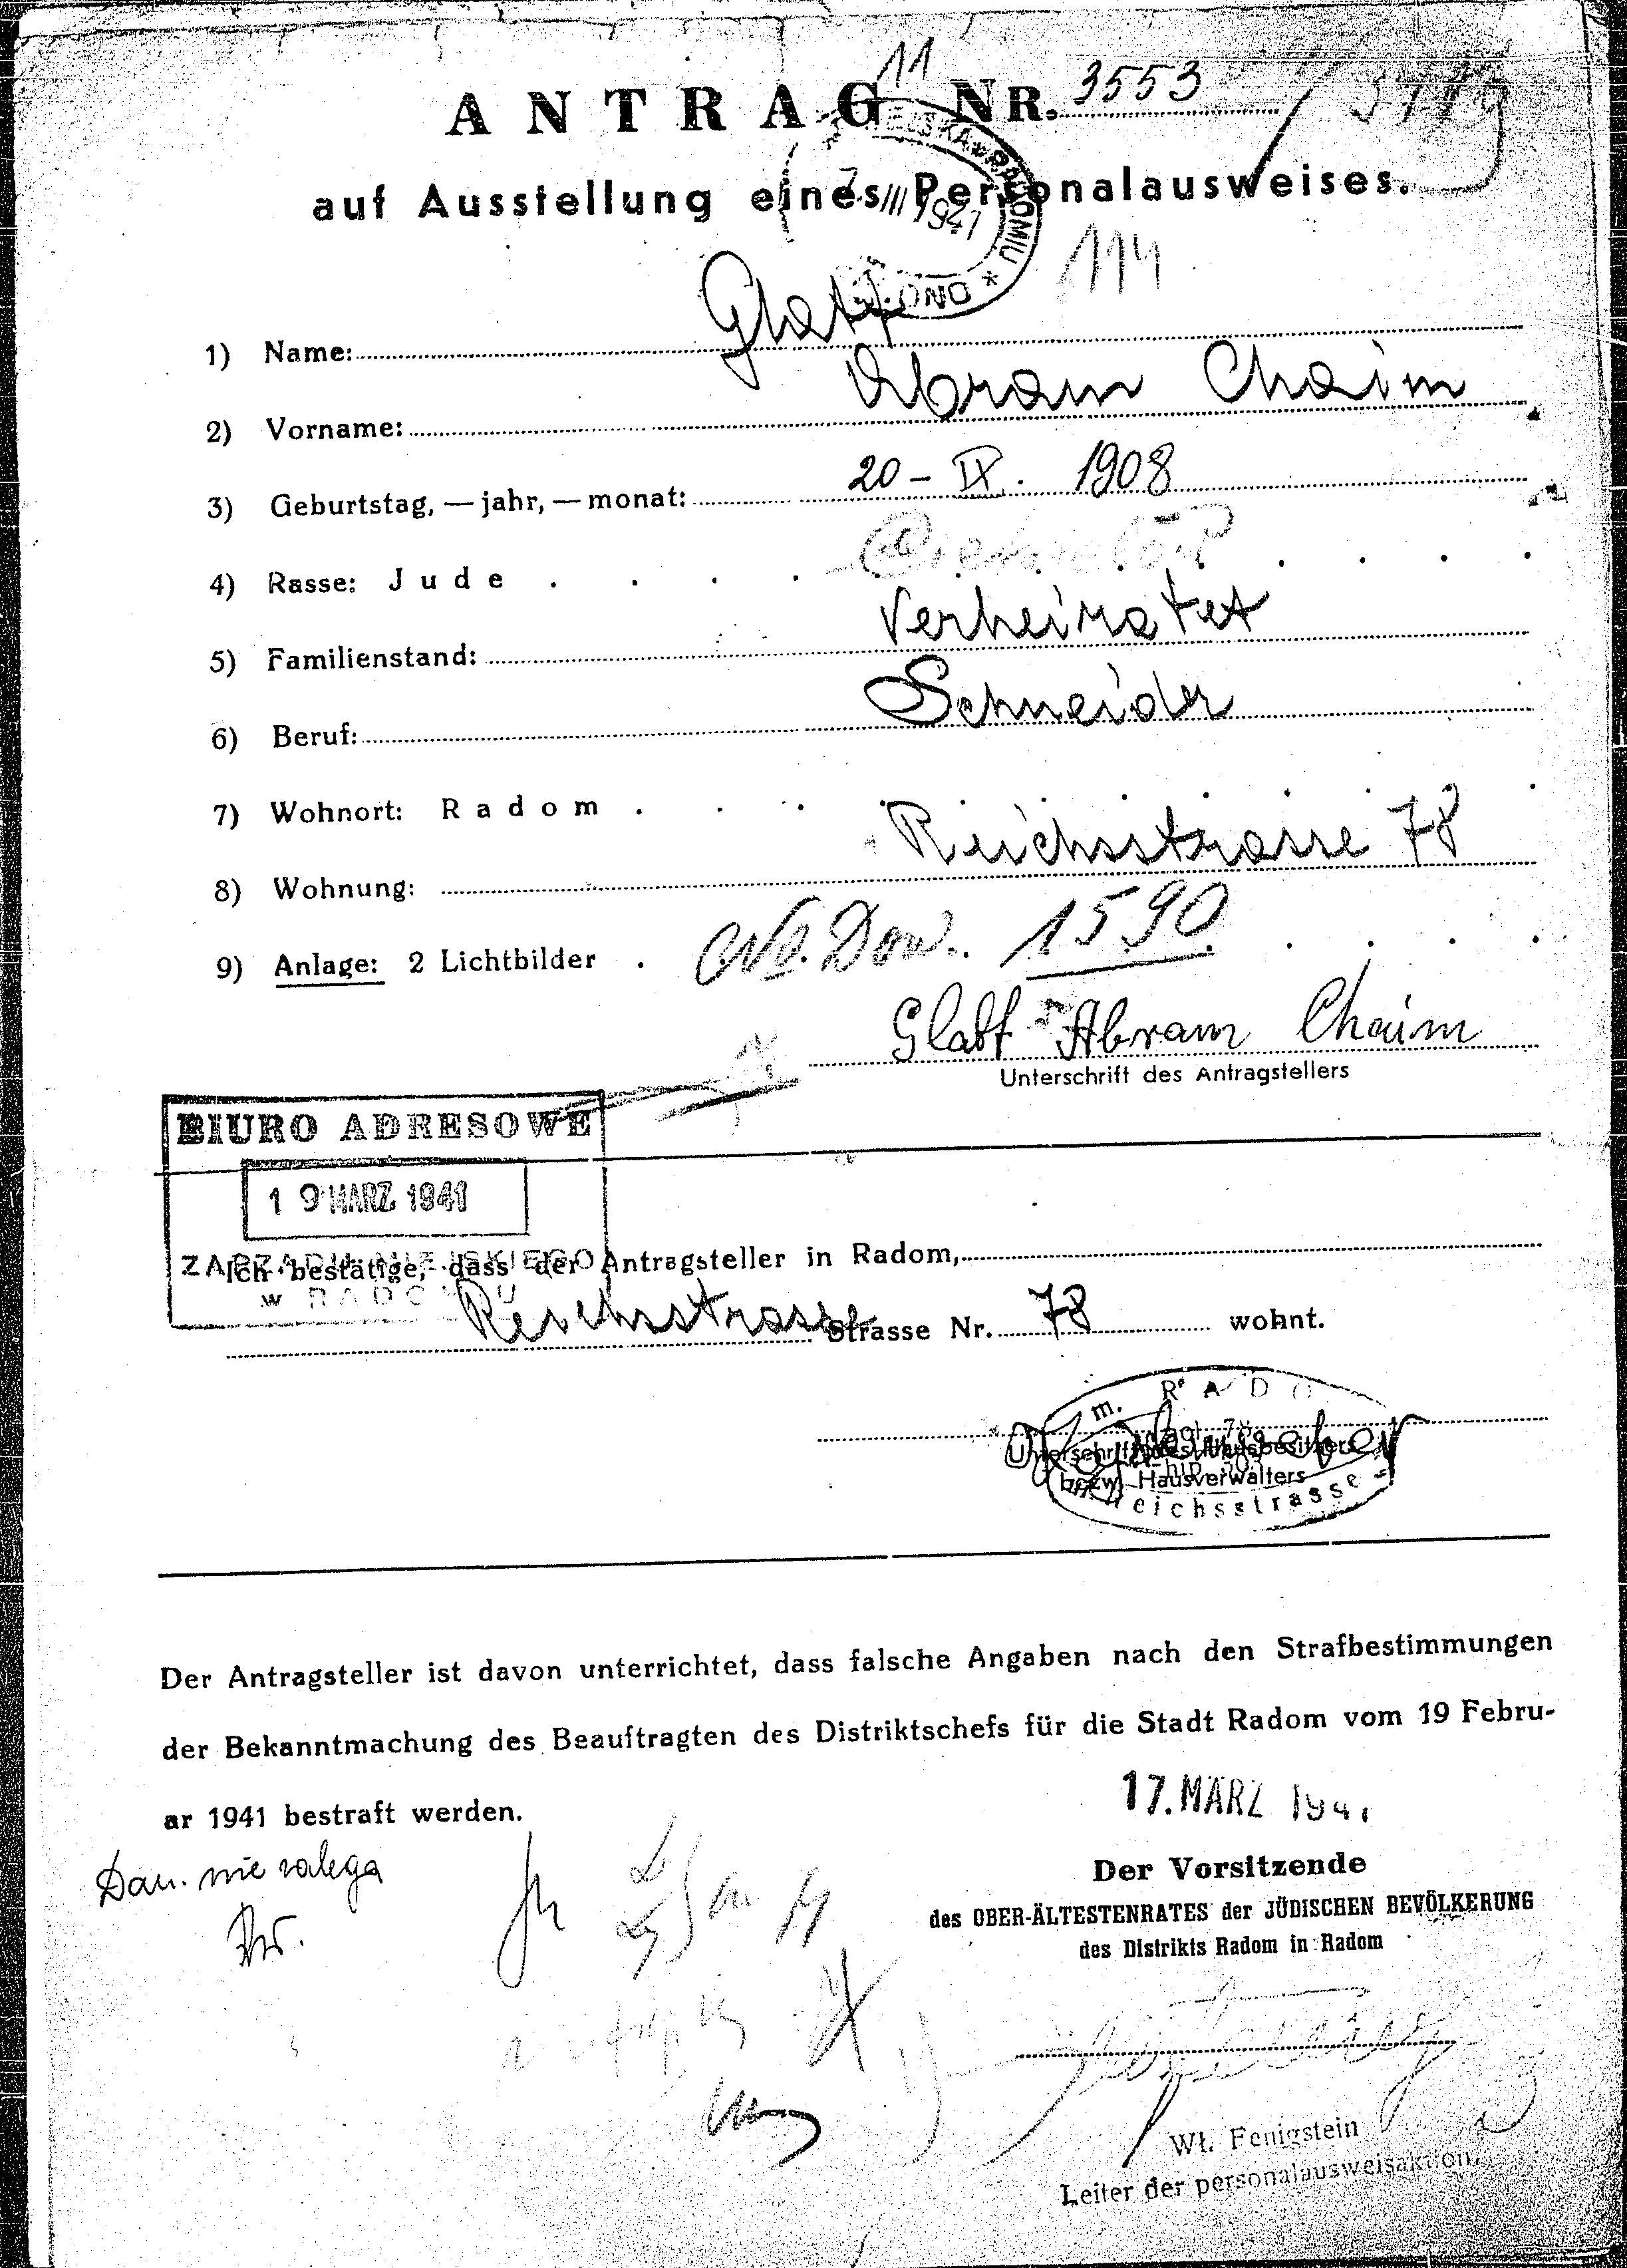 11
ANTRAG NR. 3553
auf Ausstellung eines Personalausweises.
III 1941
114
1) Name: Glatt
2) Vorname: Abram Chaim
3) Geburtstag, — jahr, — monat: 20 - IX. 1908
4) Rasse: Jude
5) Familienstand: Verheiratet
6) Beruf: Schneider
7) Wohnort: Radom
8) Wohnung: Reichsstrasse 78
9) Anlage: 2 Lichtbilder . No. Dow. 1590
Glatt Abram Chaim
Unterschrift des Antragstellers
BIURO ADRESOWE
19 MÄRZ 1941
ZARZADU MIEJSKIEGO
w RADOMIU
Ich bestätige, dass der Antragsteller in Radom,
Reichsstrasse Strasse Nr. 78 wohnt.
m. RADO
Unterschrift des Hausbesitzers
bezw. Hausverwalters
Reichsstrasse
Der Antragsteller ist davon unterrichtet, dass falsche Angaben nach den Strafbestimmungen
der Bekanntmachung des Beauftragten des Distriktschefs für die Stadt Radom vom 19 Febru-
ar 1941 bestraft werden.
17. MÄRZ 1941
Dan. nie zalega
Der Vorsitzende
des OBER-ÄLTESTENRATES der JÜDISCHEN BEVÖLKERUNG
des Distrikts Radom in Radom
Wł. Fenigstein
Leiter der personalausweisaktion.